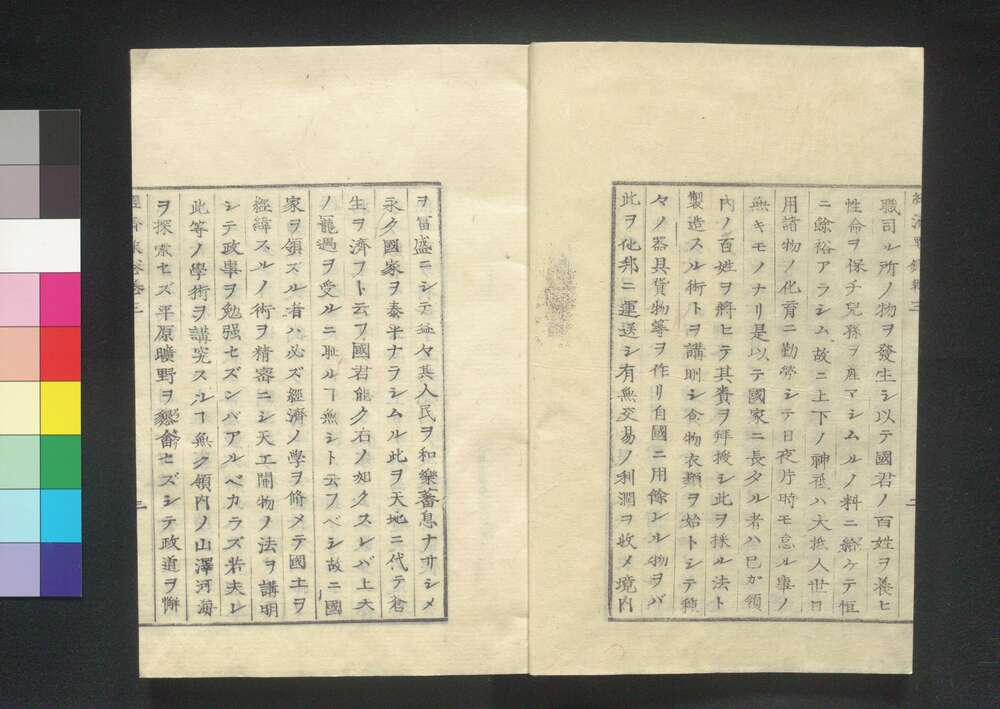 職司ル所ノ物ヲ發生シ以テ國君ノ百姓ヲ養ヒ
性命ヲ保チ兒孫ヲ産マシムルノ料ニ給ケテ恒
ニ餘裕アラシム故ニ上下ノ神祇ハ大抵人世日
用諸物ノ化育ニ勤勞シテ日夜片時モ怠ル事ノ
無キモノナリ是以テ國家ニ長タル者ハ已ガ領
内ノ百姓ヲ將ヒテ其賚ヲ拜授シ此ヲ採ル法ト
製造スル術トヲ講明シ食物衣類ヲ始トシテ種
々ノ器具貨物等ヲ作リ自國ニ用餘レル物ヲバ
此ヲ他邦ニ運送シ有無交易ノ利潤ヲ收メ境内
ヲ富盛ニシテ益々其人民ヲ和樂蕃息ナサシメ
永ク國家ヲ泰平ナラシムル此ヲ天地ニ代テ蒼
生ヲ濟フト云フ國君能ク右ノ如クスレバ上天
ノ寵遇ヲ受ルニ耻ルヿ無シト云フベシ故ニ國
家ヲ領ズル者ハ必ズ經濟ノ學ヲ脩メテ國土ヲ
經緯スルノ術ヲ精密ニシ天工開物ノ法ヲ講明
シテ政事ヲ勉强セズンバアルベカラズ若夫レ
此等ノ學術ヲ講究スルヿ無ク領内ノ山澤河海
ヲ探索セズ平原曠野ヲ墾畬セズシテ政道ヲ懈